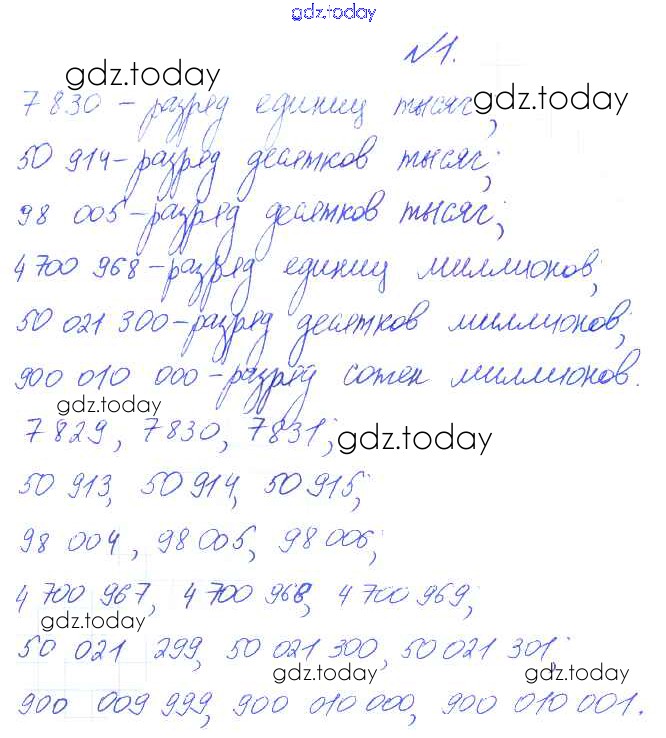 gdz.today
№1.
gdz.today
7 830 – разряд единиц тысяч,
gdz.today
50 914 – разряд десятков тысяч;
98 005 – разряд десятков тысяч;
4 700 968 – разряд единиц миллионов,
50 021 300 – разряд десятков миллионов;
900 010 000 – разряд сотен миллионов.
gdz.today
7 829, 7 830, 7 831;
gdz.today
50 913, 50 914, 50 915;
98 004, 98 005, 98 006;
4 700 967, 4 700 968, 4 700 969;
gdz.today
50 021 299, 50 021 300, 50 021 301;
gdz.today
gdz.today
900 009 999, 900 010 000, 900 010 001.